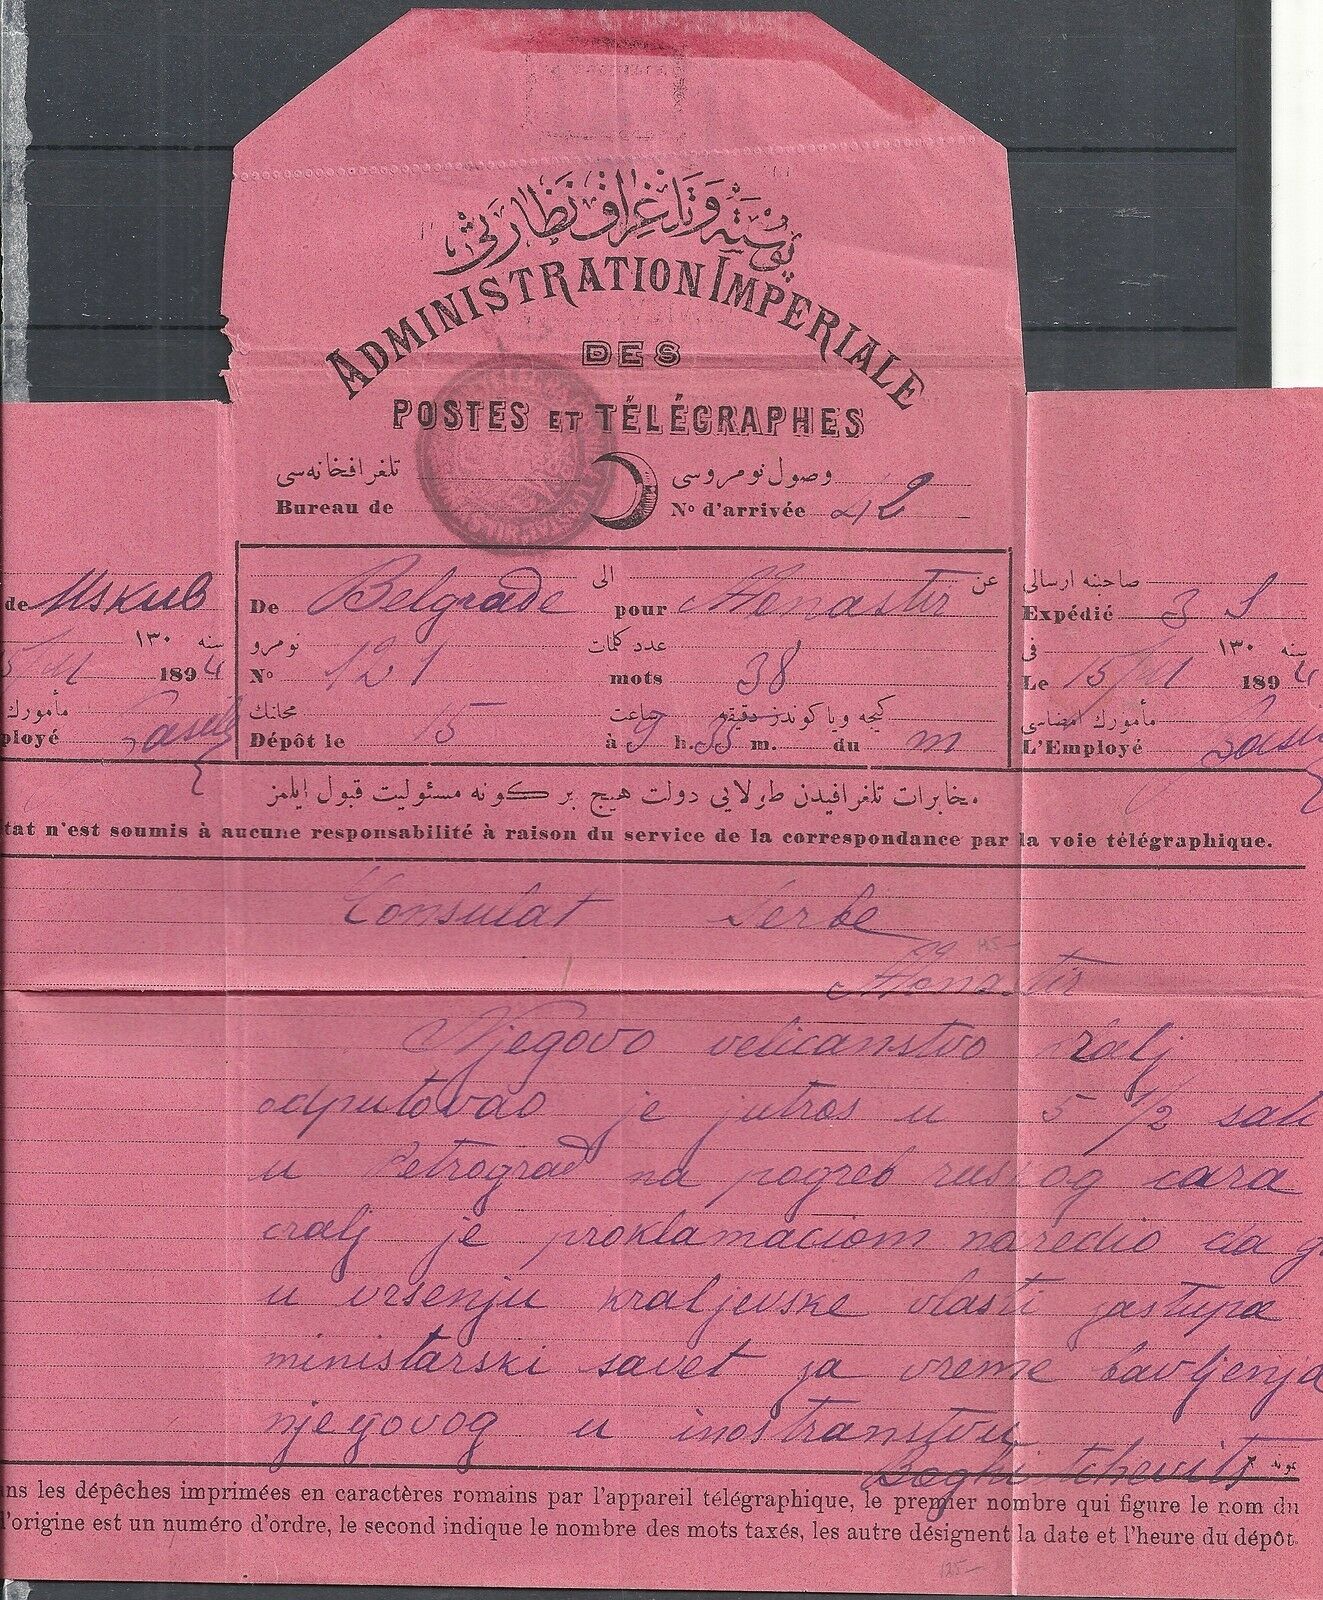 پوسته و تلغراف نظارتی
ADMINISTRATION IMPERIALE
DES
POSTES ET TÉLÉGRAPHES
تلغرافخانه‌سی وصول نومروسی
Bureau de N° d'arrivée 42
الی عن صاحبنه ارسالی
de Uskub De Belgrade pour Monastir Expédié 3 S
سنه ١٣٠ نومرو عدد کلمات فی سنه ١٣٠
1894 N° 121 mots 38 Le 15/11 1894
مأمورك محانك ساعت دقیقه کیجه ویا کوندز مأمورك امضاسی
ployé Dépôt le 15 à 9 h. 55 m. du m L'Employé
مخابرات تلغرافیدن طولایی دولت هیچ بر کونه مسئولیت قبول ایلمز
tat n'est soumis à aucune responsabilité à raison du service de la correspondance par la voie télégraphique.
Consulat Serbe
Monastir
Njegovo velicanstvo kralj
odputovao je jutros u 5 1/2 sati
u Petrograd na pogreb ruskog cara
cralj je proklamaciom naredio da g
u vrsenju kraljevske vlasti zastupa
ministarski savet za vreme bavljenja
njegovog u inostranstvu
Boghitchevits
ns les dépêches imprimées en caractères romains par l'appareil télégraphique, le premier nombre qui figure le nom du
'origine est un numéro d'ordre, le second indique le nombre des mots taxés, les autre désignent la date et l'heure du dépôt
125-